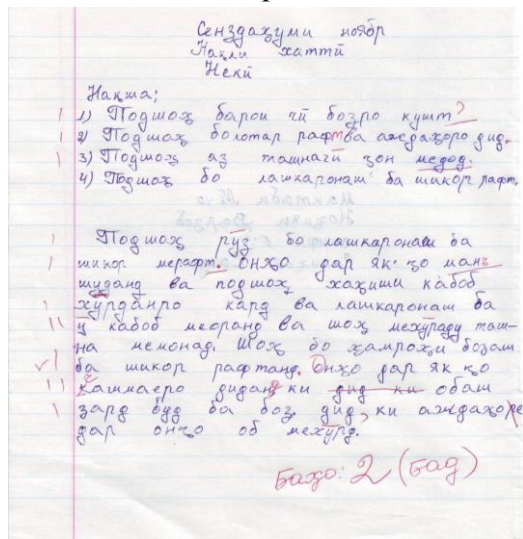 Сенздаҳуми ноябр
Нақли хаттӣ
Некӣ
Нақша:
1) Подшоҳ барои чӣ бозро кушт?
2) Подшоҳ болотар рафт ва аждаҳоро дид.
3) Подшоҳ аз ташнагӣ ҷон медод.
4) Подшоҳ бо лашкаронаш ба шикор рафт.
Подшоҳ рӯз бо лашкаронаш ба
шикор мерафт. Онҳо дар як ҷо манъ
шуданд ва подшоҳ хаҳиши кабоб
хӯрданро кард ва лашкаронаш ба
ӯ кабоб меоранд ва шоҳ мехӯраду таш-
на мемонад. Шоҳ бо ҳамроҳи бозаш
ба шикор рафтанд. Онҳо дар як ҷо
чашмаеро диданд ки дид ки обаш
зард буд ва боз дид, ки аждаҳоре
дар онҷо об мехӯрд.
Баҳо: 2 (бад)